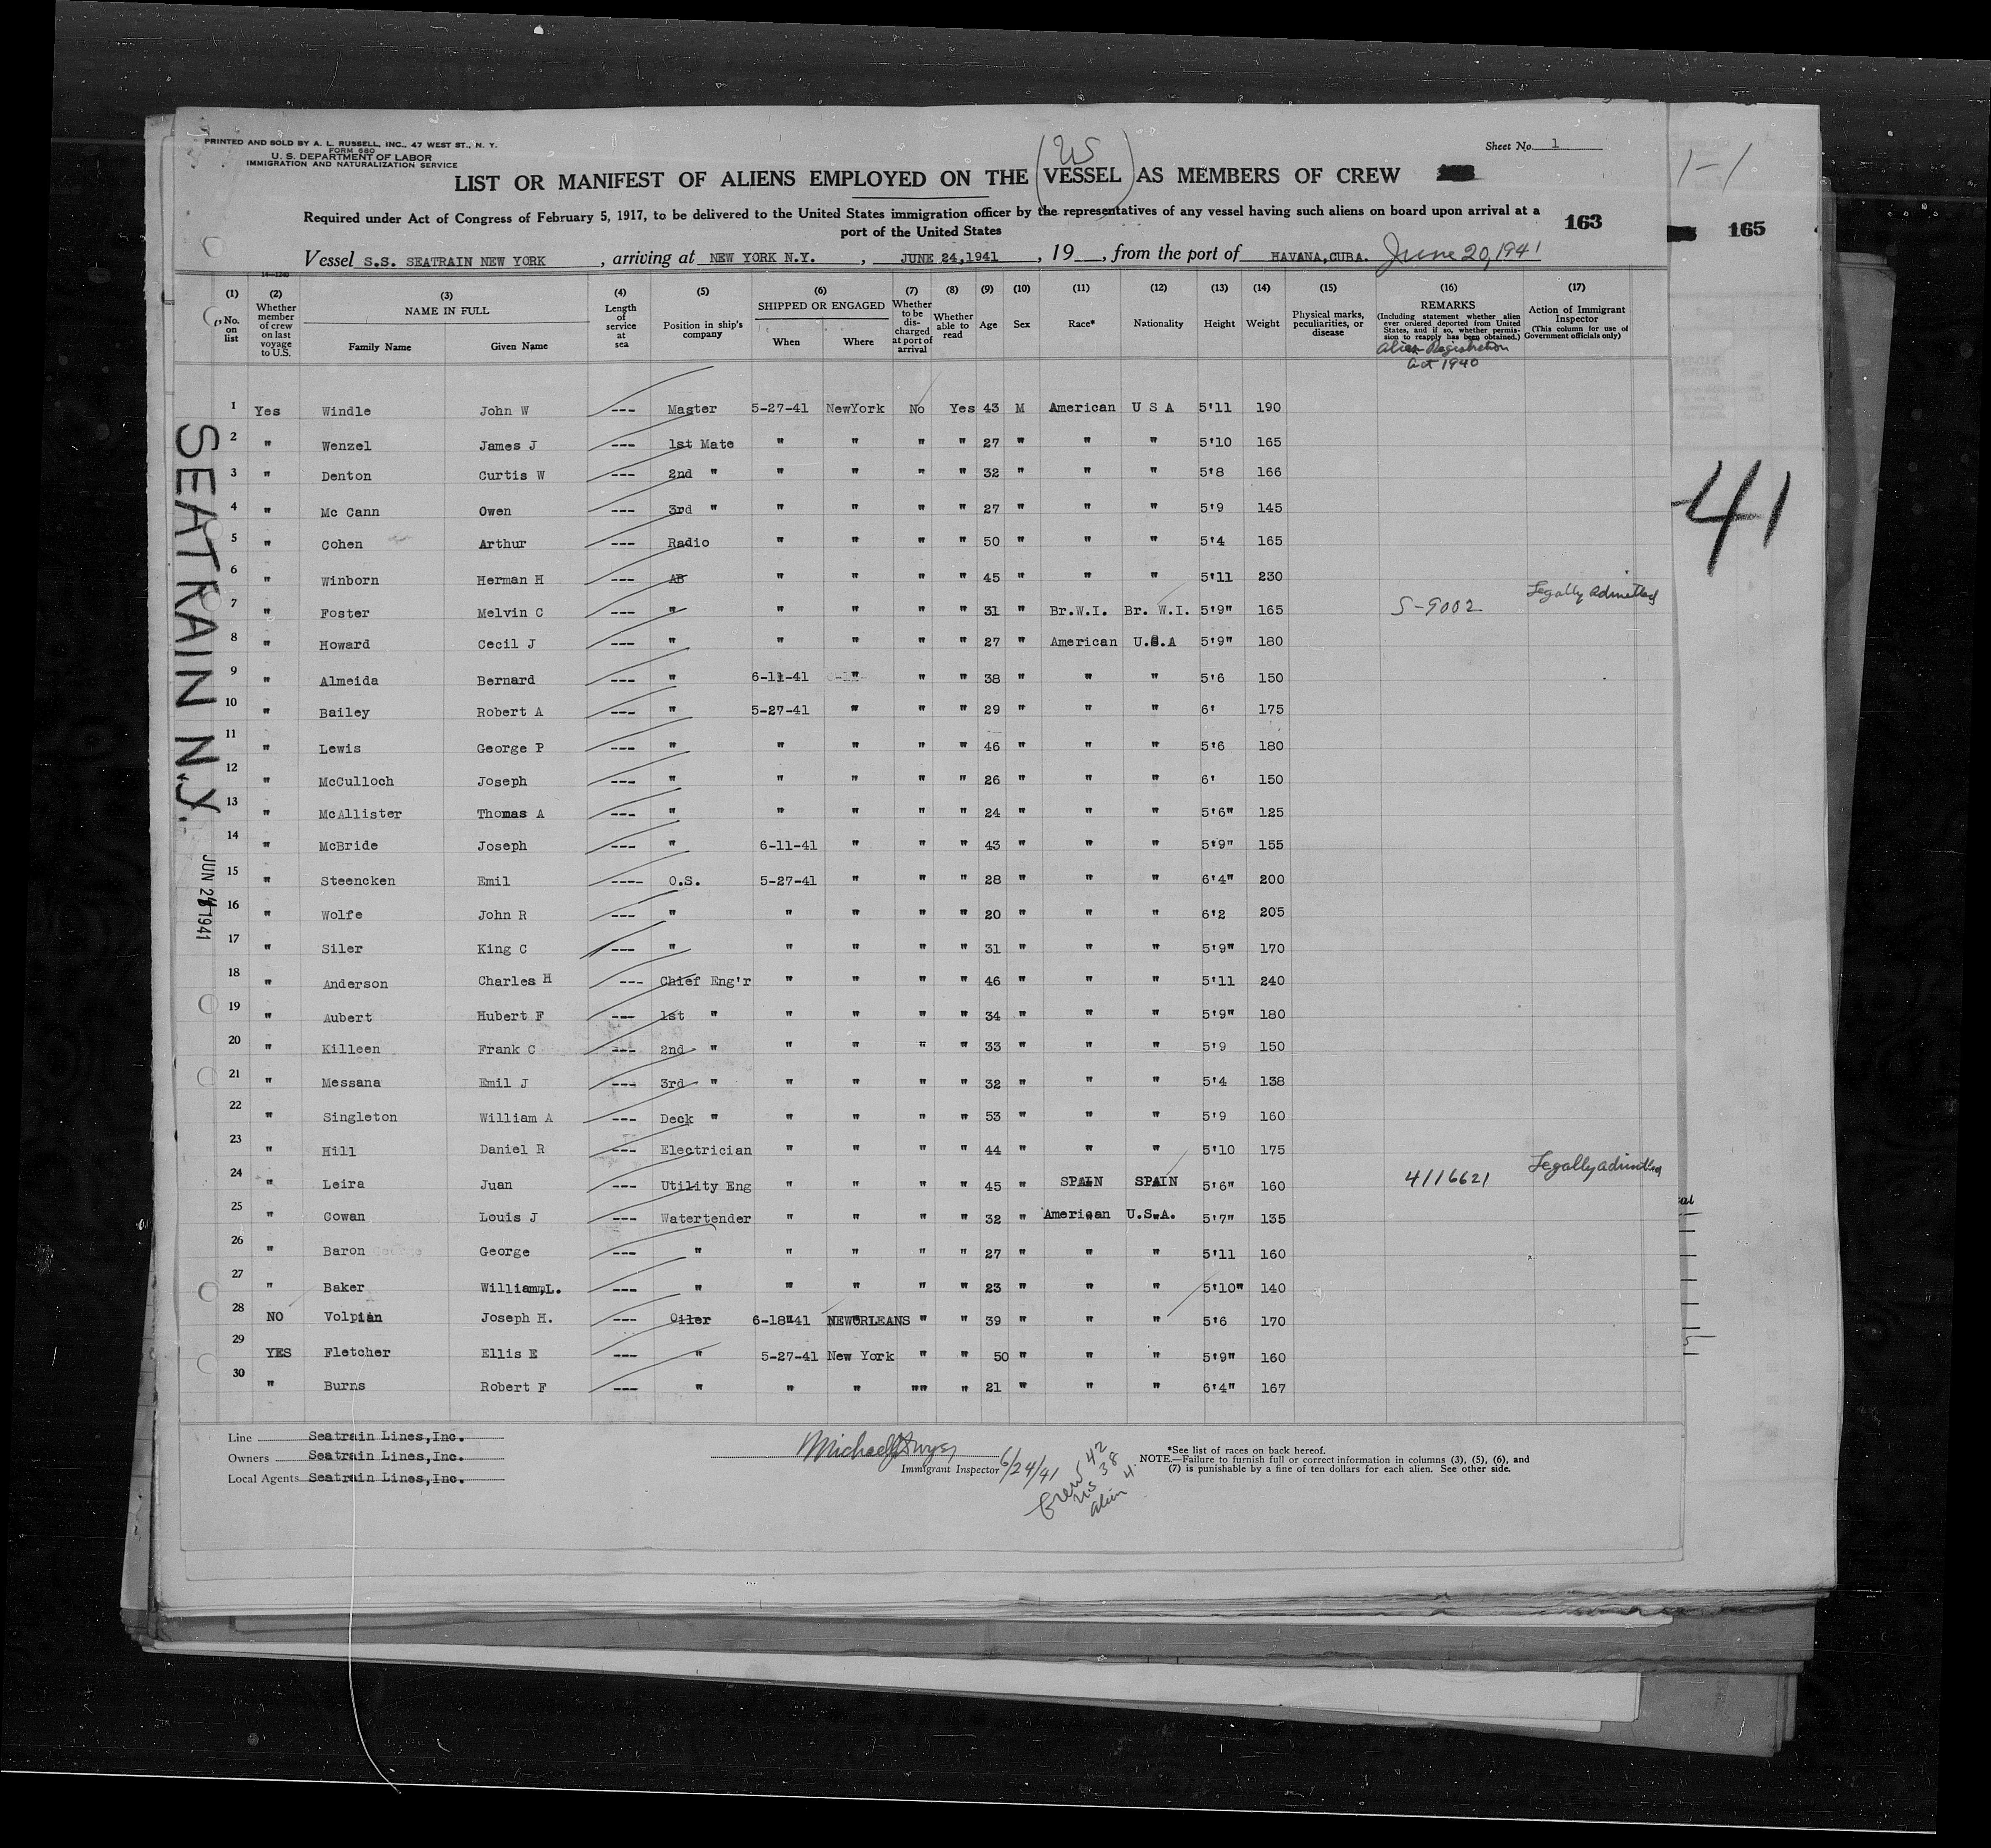 PRINTED AND SOLD BY A. L. RUSSELL, INC., 47 WEST ST., N. Y.
FORM 680
U. S. DEPARTMENT OF LABOR
IMMIGRATION AND NATURALIZATION SERVICE
Sheet No. 1
US
LIST OR MANIFEST OF ALIENS EMPLOYED ON THE VESSEL AS MEMBERS OF CREW
1-1
Required under Act of Congress of February 5, 1917, to be delivered to the United States immigration officer by the representatives of any vessel having such aliens on board upon arrival at a
port of the United States
163
165
Vessel S.S. SEATRAIN NEW YORK, arriving at NEW YORK N.Y., JUNE 24,1941, 19__, from the port of HAVANA,CUBA. June 20, 1941
14—1240
(1) (2) (3) (4) (5) (6) (7) (8) (9) (10) (11) (12) (13) (14) (15) (16) (17)
No. on list
Whether member of crew on last voyage to U.S.
NAME IN FULL
Family Name Given Name
Length of service at sea
Position in ship's company
SHIPPED OR ENGAGED
When Where
Whether to be discharged at port of arrival
Whether able to read
Age Sex Race* Nationality Height Weight
Physical marks, peculiarities, or disease
REMARKS
(Including statement whether alien ever ordered deported from United States, and if so, whether permission to reapply has been obtained.)
Alien Registration
Act 1940
Action of Immigrant Inspector
(This column for use of Government officials only)
1 Yes Windle John W --- Master 5-27-41 NewYork No Yes 43 M American U S A 5'11 190
2 " Wenzel James J --- 1st Mate " " " " 27 " " " 5'10 165
3 " Denton Curtis W --- 2nd " " " " " 32 " " " 5'8 166
4 " Mc Cann Owen --- 3rd " " " " " 27 " " " 5'9 145
5 " Cohen Arthur --- Radio " " " " 50 " " " 5'4 165
6 " Winborn Herman H --- AB " " " " 45 " " " 5'11 230
7 " Foster Melvin C --- " " " " " 31 " Br.W.I. Br. W.I. 5'9" 165 S-9002 Legally admitted
8 " Howard Cecil J --- " " " " " 27 " American U.S.A 5'9" 180
9 " Almeida Bernard --- " 6-11-41 " " " 38 " " " 5'6 150
10 " Bailey Robert A --- " 5-27-41 " " " 29 " " " 6' 175
11 " Lewis George P --- " " " " " 46 " " " 5'6 180
12 " McCulloch Joseph --- " " " " " 26 " " " 6' 150
13 " McAllister Thomas A --- " " " " " 24 " " " 5'6" 125
14 " McBride Joseph --- " 6-11-41 " " " 43 " " " 5'9" 155
15 " Steencken Emil ---- O.S. 5-27-41 " " " 28 " " " 6'4" 200
16 " Wolfe John R --- " " " " " 20 " " " 6'2 205
17 " Siler King C --- " " " " " 31 " " " 5'9" 170
18 " Anderson Charles H --- Chief Eng'r " " " " 46 " " " 5'11 240
19 " Aubert Hubert F --- 1st " " " " " 34 " " " 5'9" 180
20 " Killeen Frank C --- 2nd " " " " " 33 " " " 5'9 150
21 " Messana Emil J --- 3rd " " " " " 32 " " " 5'4 138
22 " Singleton William A --- Deck " " " " " 53 " " " 5'9 160
23 " Hill Daniel R --- Electrician " " " " 44 " " " 5'10 175
24 " Leira Juan --- Utility Eng " " " " 45 " SPAIN SPAIN 5'6" 160 4116621 Legally admitted
25 " Cowan Louis J --- Watertender " " " " 32 " American U.S.A. 5'7" 135
26 " Baron George --- " " " " " 27 " " " 5'11 160
27 " Baker William,L. --- " " " " " 23 " " " 5'10" 140
28 NO Volpian Joseph H. --- Oiler 6-18-41 NEWORLEANS " " 39 " " " 5'6 170
29 YES Fletcher Ellis E --- " 5-27-41 New York " " 50 " " " 5'9" 160
30 " Burns Robert F --- " " " "" " 21 " " " 6'4" 167
SEATRAIN N.Y.
JUN 24 1941
41
Line Seatrain Lines,Inc.
Owners Seatrain Lines,Inc.
Local Agents Seatrain Lines,Inc.
Immigrant Inspector 6/24/41
Crew 42
US 38
Alien 4
*See list of races on back hereof.
NOTE.—Failure to furnish full or correct information in columns (3), (5), (6), and
(7) is punishable by a fine of ten dollars for each alien. See other side.